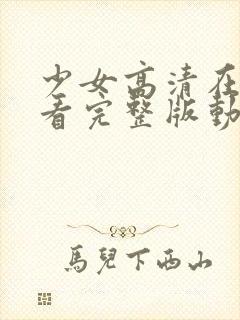 少女高清在
看完整版動
馬兒下西山